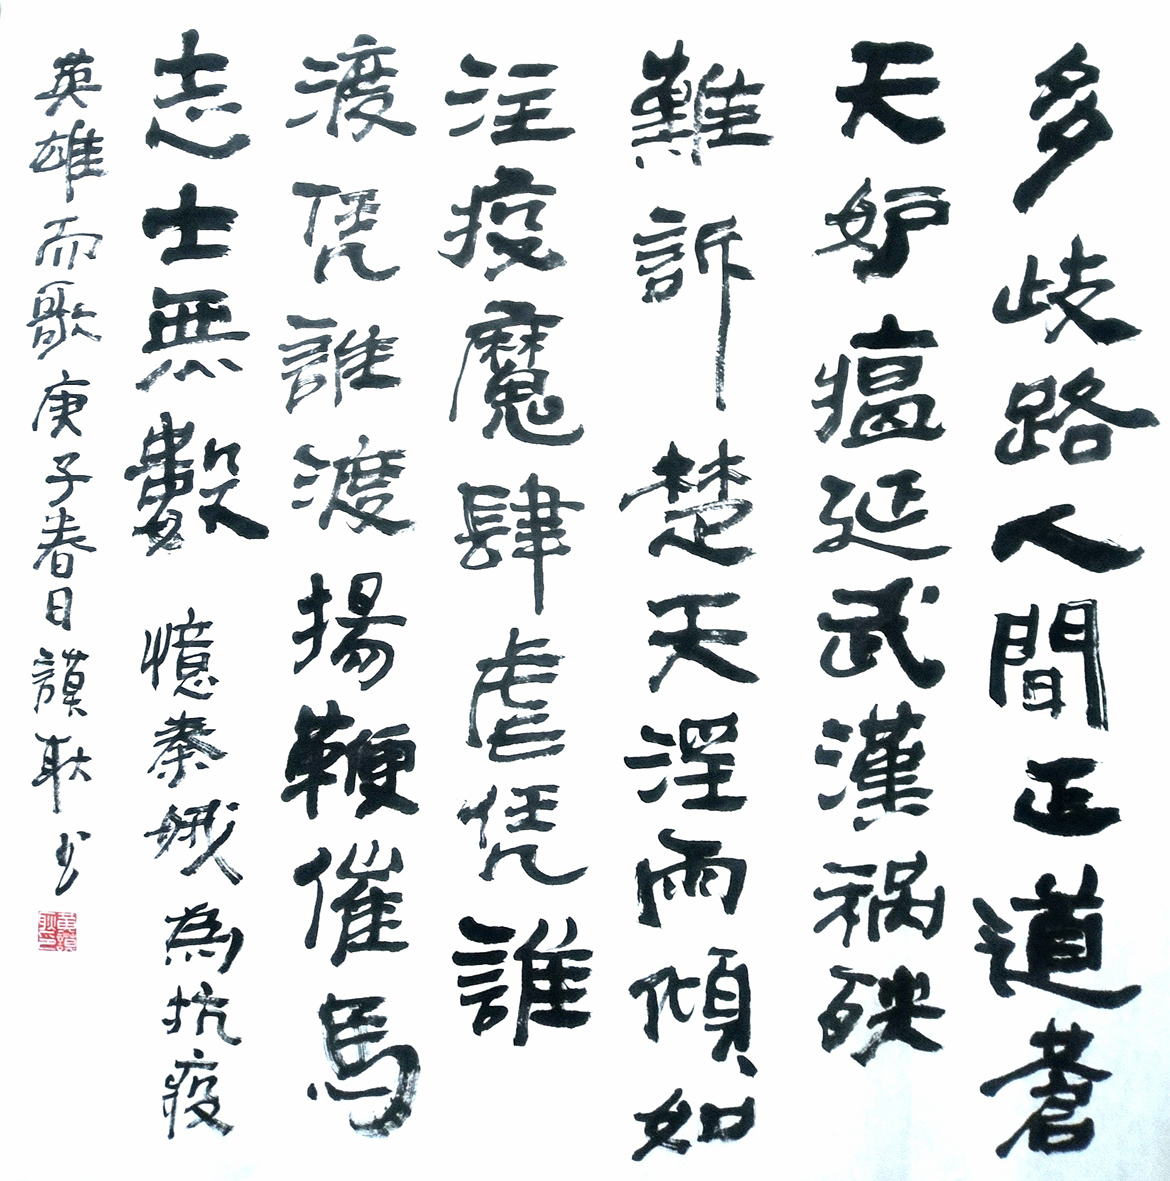 多歧路人間正道蒼
天妒瘟延武漢禍殃
難訴楚天淫雨傾如
注疫魔肆虐凭誰
渡凭誰渡揚鞭催馬
志士無數 憶秦娥為抗疫
英雄而歌庚子春日謨耿书